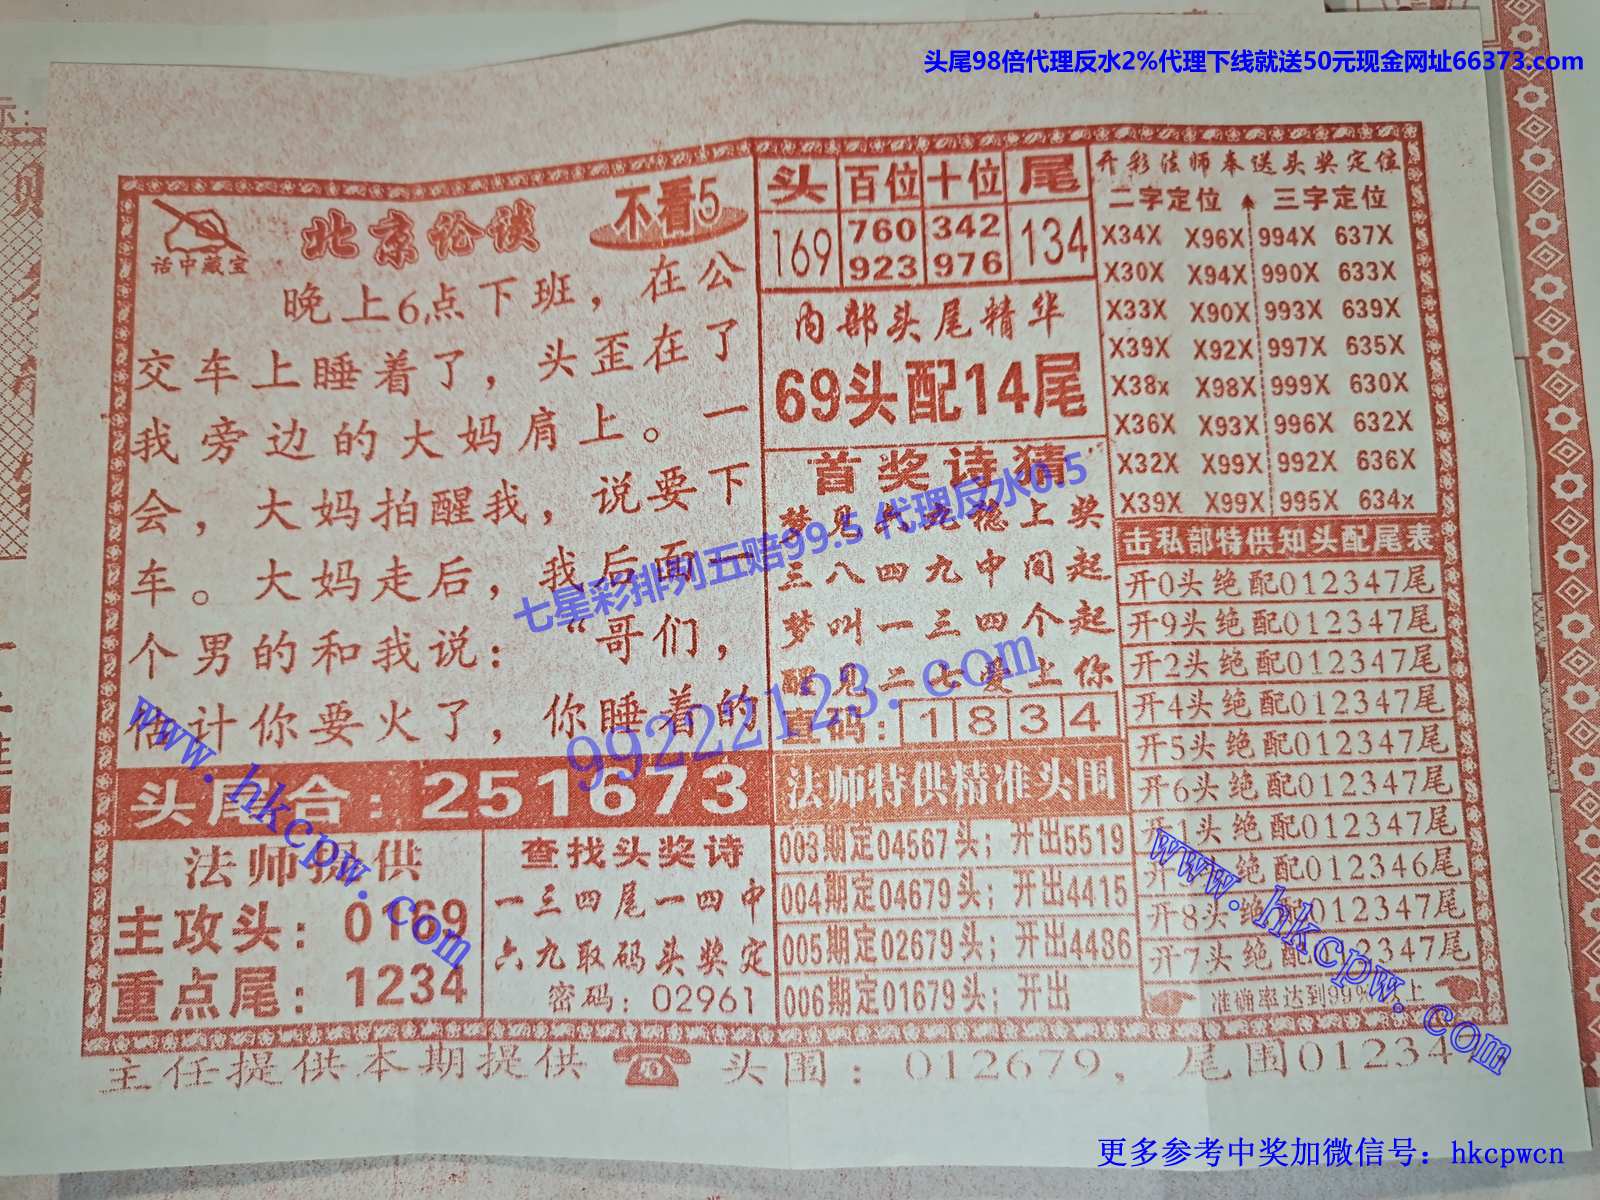 头尾98倍代理反水2%代理下线就送50元现金网址66373.com
话中藏宝
北京论谈
不看5
晚上6点下班，在公
交车上睡着了，头歪在了
我旁边的大妈肩上。一
会，大妈拍醒我，说要下
车。大妈走后，我后面一
个男的和我说："哥们，
估计你要火了，你睡着的
头尾合：251673
法师提供
主攻头：0169
重点尾：1234
查找头奖诗
一三四尾一四中
六九取码头奖定
密码：02961
头 百位 十位 尾
169 760 342 134
923 976
内部头尾精华
69头配14尾
首奖诗猜
梦见六九稳上奖
三八四九中间起
梦叫一三四个起
醒见二七爱上你
直码：1834
法师特供精准头围
003期定04567头；开出5519
004期定04679头；开出4415
005期定02679头；开出4486
006期定01679头；开出
开彩法师奉送头奖定位
二字定位 三字定位
X34X X96X 994X 637X
X30X X94X 990X 633X
X33X X90X 993X 639X
X39X X92X 997X 635X
X38x X98X 999X 630X
X36X X93X 996X 632X
X32X X99X 992X 636X
X39X X99X 995X 634x
击私部特供知头配尾表
开0头绝配012347尾
开9头绝配012347尾
开2头绝配012347尾
开4头绝配012347尾
开5头绝配012347尾
开6头绝配012347尾
开1头绝配012347尾
开 头绝配012346尾
开8头绝配012347尾
开7头绝配012347尾
准确率达到99%以上
主任提供本期提供 头围：012679，尾围01234
七星彩排列五赔99.5 代理反水0.5
99222123.com
www.hkcpw.com
www.hkcpw.com
更多参考中奖加微信号：hkcpwcn